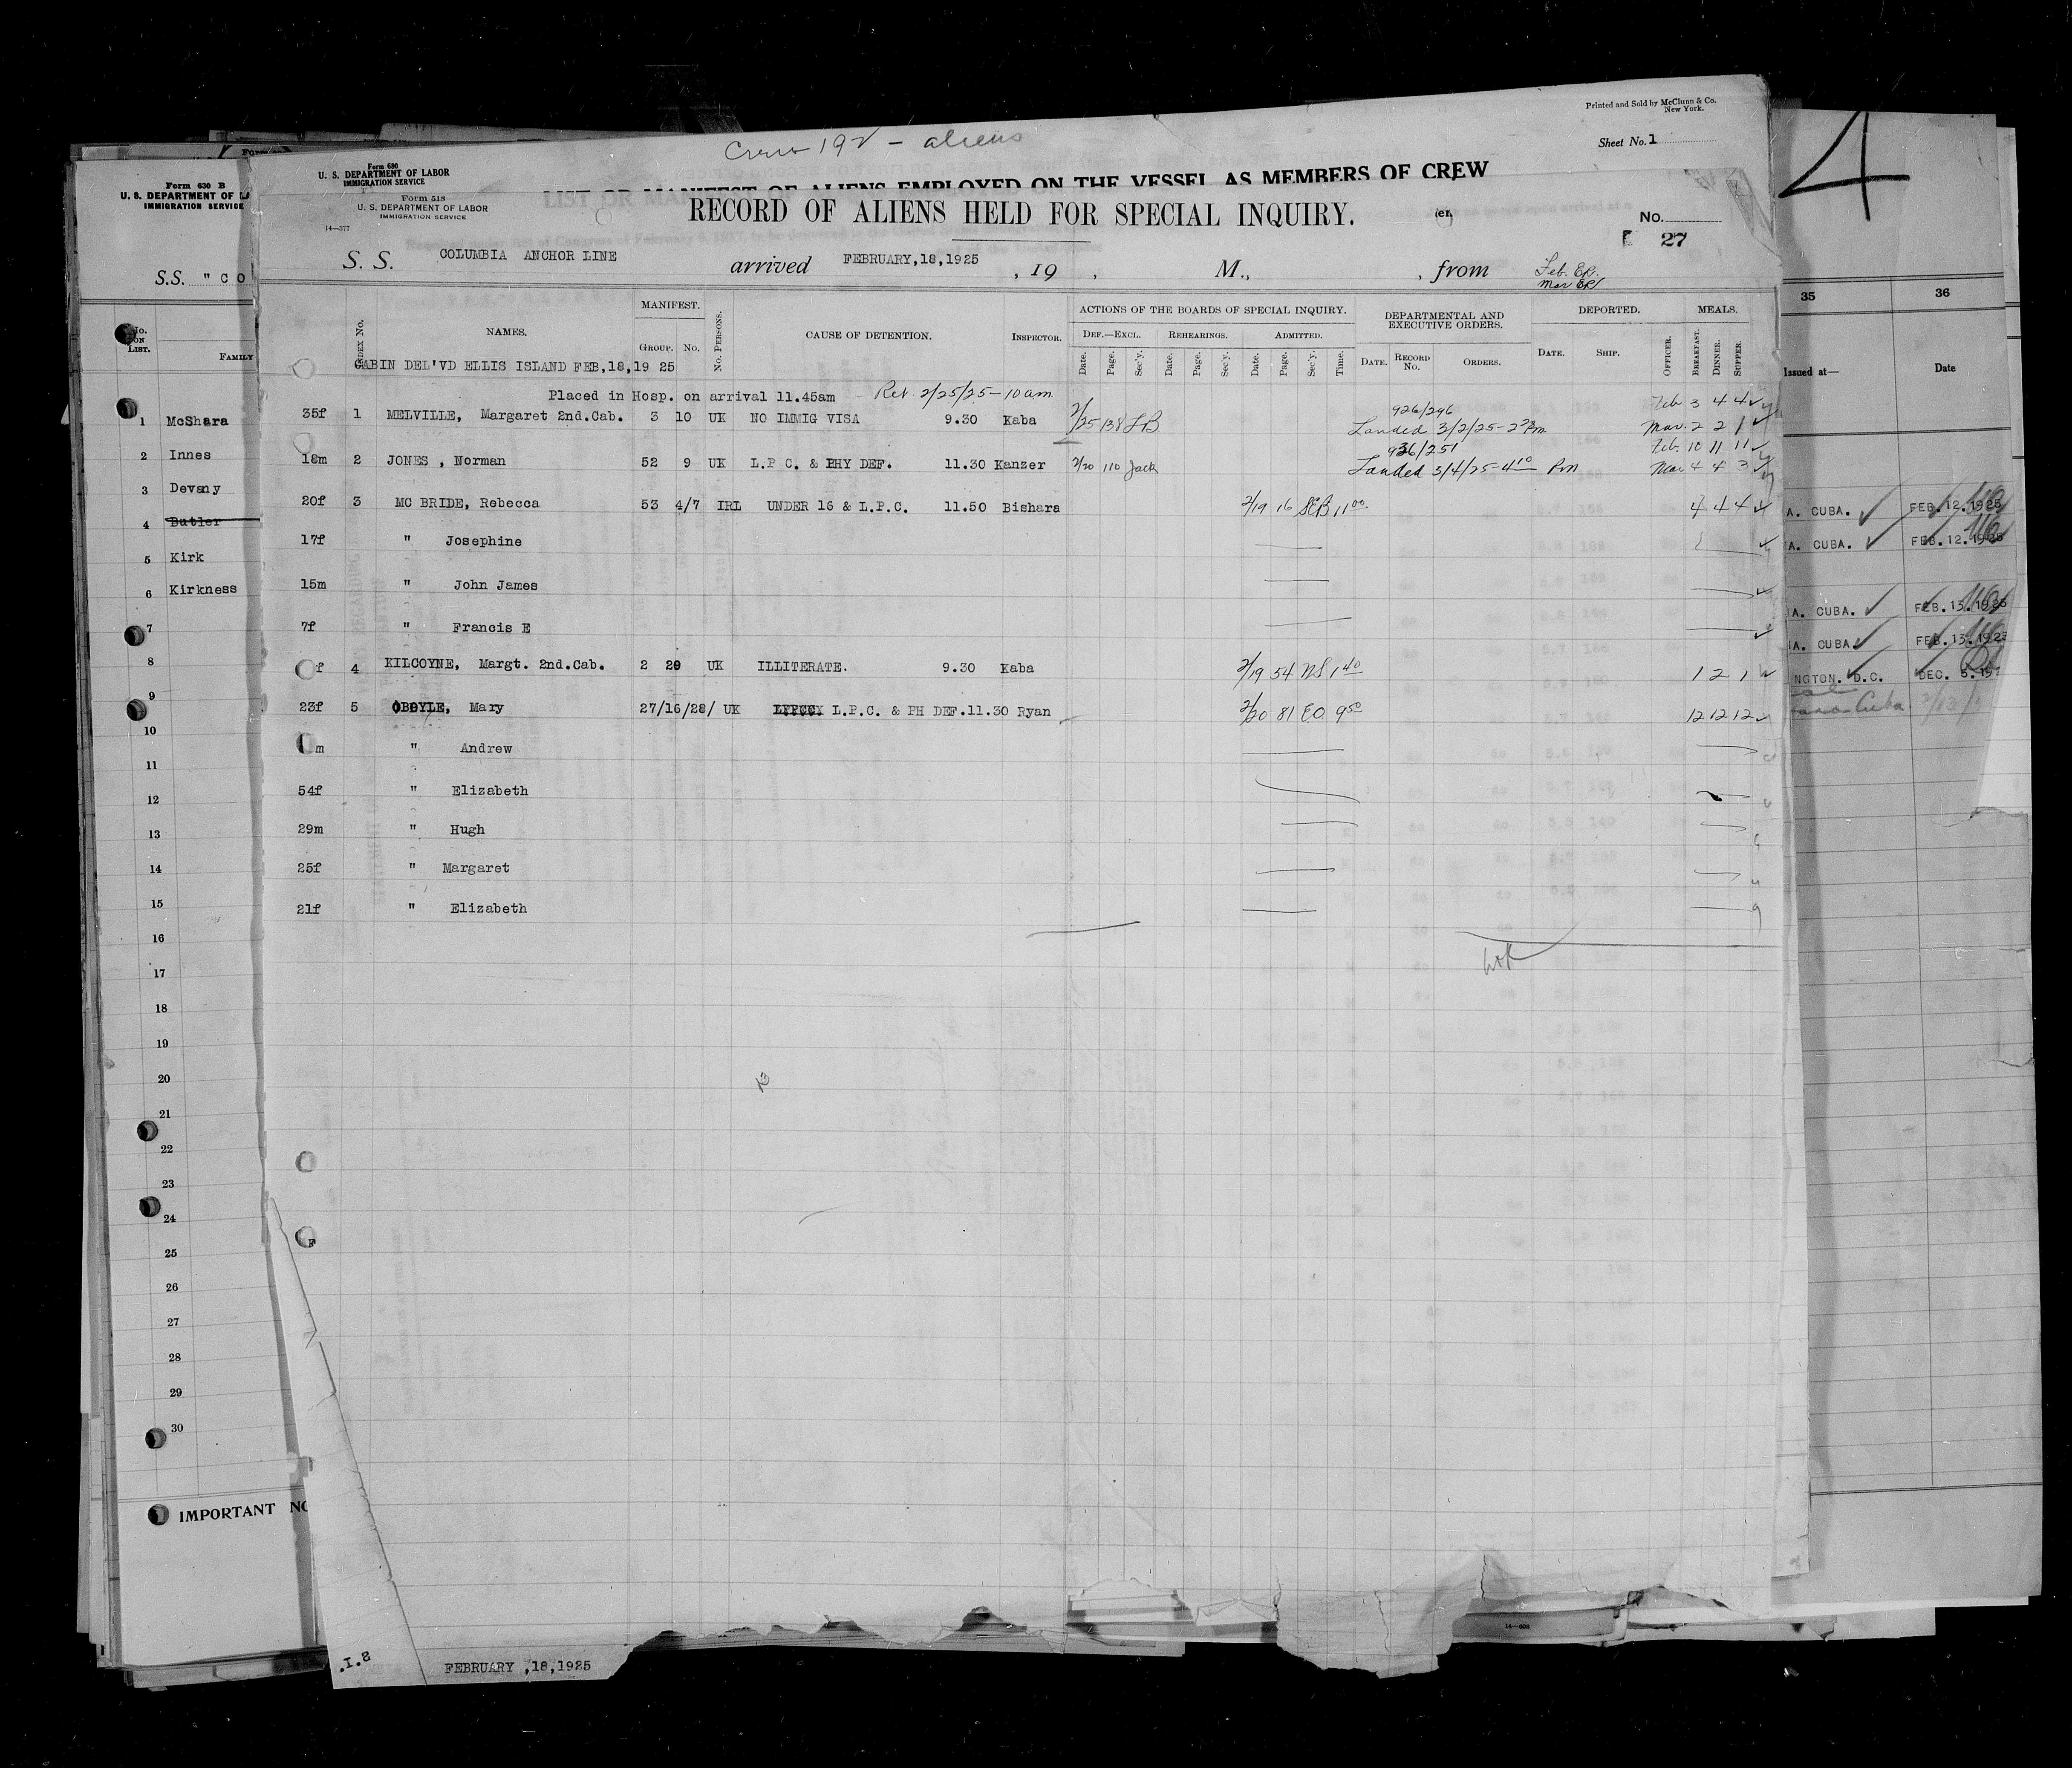 Printed and Sold by McClunn & Co.
New York.
Crew 192 - aliens
Sheet No. 1
4
Form 630 B
U. S. DEPARTMENT OF LA
IMMIGRATION SERVICE
Form 680
U. S. DEPARTMENT OF LABOR
IMMIGRATION SERVICE
LIST OR MANIFEST OF ALIENS EMPLOYED ON THE VESSEL AS MEMBERS OF CREW
Form 518
U. S. DEPARTMENT OF LABOR
IMMIGRATION SERVICE
14—577
RECORD OF ALIENS HELD FOR SPECIAL INQUIRY.
No.
27
S.S. "CO
S. S. COLUMBIA ANCHOR LINE arrived FEBRUARY,18,1925 , 19 , M., , from
Feb. ER.
Mar ER
INDEX No. NAMES. MANIFEST. GROUP. No. No. PERSONS. CAUSE OF DETENTION. INSPECTOR.
ACTIONS OF THE BOARDS OF SPECIAL INQUIRY.
DEF.—EXCL. REHEARINGS. ADMITTED.
Date. Page. Sec'y. Date. Page. Sec'y. Date. Page. Sec'y. Time.
DEPARTMENTAL AND EXECUTIVE ORDERS.
DATE. RECORD No. ORDERS.
DEPORTED.
DATE. SHIP.
OFFICER.
MEALS.
BREAKFAST. DINNER. SUPPER.
CABIN DEL'VD ELLIS ISLAND FEB,18,19 25
Placed in Hosp. on arrival 11.45am Ret 2/25/25 - 10 am
35f 1 MELVILLE, Margaret 2nd.Cab. 3 10 UK NO IMMIG VISA 9.30 Kaba 2/25 138 LB 926/296 Feb 3 4 4
Landed 3/2/25 - Mar. 2 2 1
18m 2 JONES , Norman 52 9 UK L.P C. & PHY DEF. 11.30 Kanzer 2/20 110 Jack 926/251 Feb. 10 11 11
Landed 3/4/25 - 4 10 Pm Mar 4 4 3
20f 3 MC BRIDE, Rebecca 53 4/7 IRL UNDER 16 & L.P.C. 11.50 Bishara 2/19 16 11 00 4 4 4
17f " Josephine
15m " John James
7f " Francis E
f 4 KILCOYNE, Margt. 2nd.Cab. 2 29 UK ILLITERATE. 9.30 Kaba 2/19 54 NS 1 40 1 2 1
23f 5 OBOYLE, Mary 27/16/28/ UK L.P.C. & PH DEF.11.30 Ryan 2/20 81 EO 9 50 12 12 12
m " Andrew
54f " Elizabeth
29m " Hugh
25f " Margaret
21f " Elizabeth
No. ON LIST.
FAMILY
1 McShara
2 Innes
3 Devany
4 Butler
5 Kirk
6 Kirkness
7
8
9
10
11
12
13
14
15
16
17
18
19
20
21
22
23
24
25
26
27
28
29
30
IMPORTANT NO
35 36
Issued at— Date
A. CUBA. FEB.12.1925
A. CUBA. FEB.12.1925
A. CUBA. FEB.13.1925
A. CUBA FEB.13.1925
NGTON. D.C. DEC. 5.19
Cuba
13
F
.I.8
FEBRUARY ,18,1925
14—608